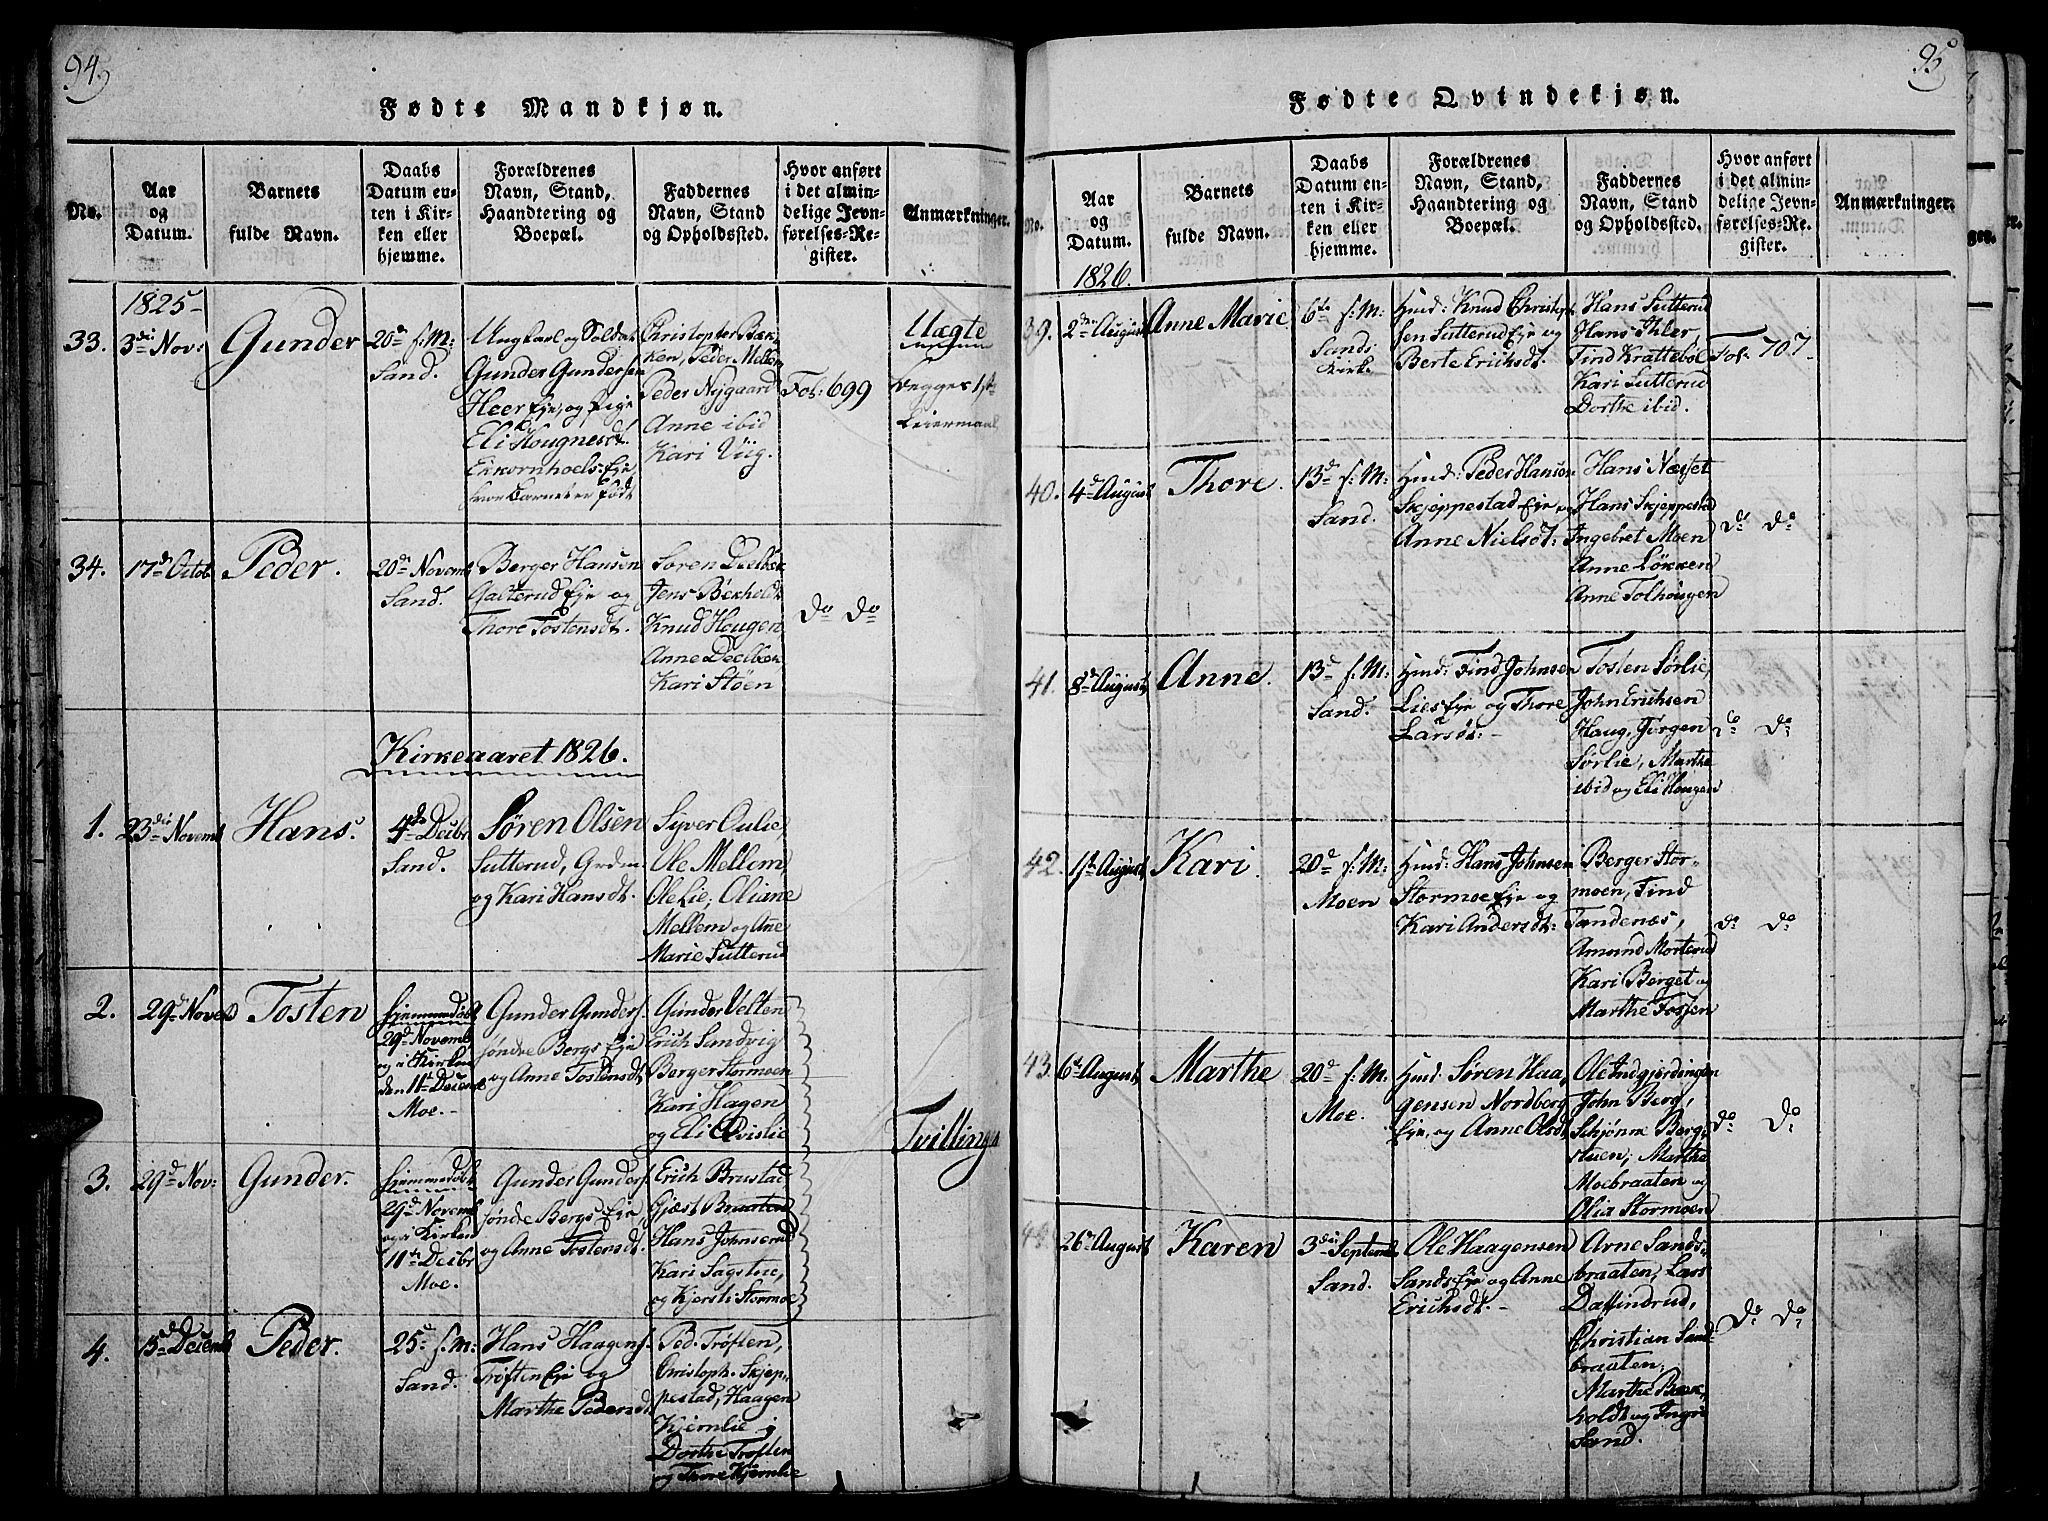 94.
Fødte Mandkjøn.
No.
Aar
og
Datum.
Barnets
fulde Navn.
Daabs
Datum en-
ten i Kir-
ken eller
hjemme.
Forældrenes
Navn, Stand,
Haandtering og
Boepæl.
Faddernes
Navn, Stand
og Opholdssted.
Hvor anført
i det almin-
delige Jevn-
førelses-Re-
gister.
Anmærkninger.
1825
33.
3die Nov:
Gunder
20de s: M:
Sand.
Ungkarl og Soldat
Gunder Gundersen
Heer Eje, og Pige
Eli Hougnesdt.
Ekornhoels Eje
hvor Barnet er født
Christopher Bæk-
ken, Peder Mellem
Peder Nygaard
Anne ibid
Kari Viig.
Fol: 699
Uægte
Begges 1ste
Leiermaal
34.
17de Octob
Peder.
20de Novemb
Sand.
Berger Hansen
Galterud Eje og
Thore Tostensdt.
Søren
Jens Bekholdt
Knud Hougen
Anne
Kari Støen
do do
Kirkeaaret 1826.
1.
23die Novemb
Hans.
4de Decbr
Sand.
Søren Olsen
Sutterud, Grdm
og Kari Hansdt.
Syver Oulie,
Ole Mellem,
Ole Lie, Oliane
Mellem og Ane
Marie Sutterud
2.
29de Novemb
Tosten
Hjemmedøbt
29de Novemb
og i Kirken
den 11te Decemb
Moe.-
Gunder Gunders.
søndre Bergs Eje
og Anne Tostensdt
Gunder Velten
Erich Sandvig
Berger Stormoen
Kari Hagen
og Eli Qvislie
Tvillinger
3.
29de Nov:
Gunder.
Hjemmedøbt
29de Novemb
og i Kirken
11te Decbr
Moe.
Gunder Gunders.
søndre Bergs Eje
og Anne Tostensdt.
Erich Brustad
Gjæst Braaten
Hans Johnserud
Kari Sagstue,
og Kjersti Stormoe
4.
Decemb
Peder.
25de s: M:
Sand.
Hans Haagens.
Trøften Eje og
Marthe Pedersdt
Ped. Trøften,
Christoph. Skjep-
pestad, Haagen
Kjernlie
Dorthe Trøften
og Thore Kjernlie
95
Fødte Qvindekjøn.
No.
Aar
og
Datum.
Barnets
fulde Navn.
Daabs
Datum en-
ten i Kir-
ken eller
hjemme.
Forældrenes
Navn, Stand,
Haandtering og
Boepæl.
Faddernes
Navn, Stand
og Opholdssted.
Hvor anført
i det almin-
delige Jevn-
førelses-Re-
gister.
Anmærkninger.
1826.
39.
2den August
Anne Marie
6te s: M:
Sands
Kirke
Hmd: Knud Christof-
fersen Sutterud Eje og
Berte Ericksdt.
Hans Sutterud
Hans Ihler,
Find Krattebøl
Kari Sutterud
Dorthe ibid.
Fol: 707
40.
4de August
Thore.
13de s: M:
Sand.
Hmd: Peder Hansen
Skjeppestad Eje og
Anne Nielsdt:
Hans Næset
Hans Skjeppestad
Ingebret Moen
Anne Løkken
Anne Tolhougen
do do
41.
8de August
Anne.
13de s: M:
Sand.
Hmd: Find Johnsen
Lies Eje og Thore
Larsdt:-
Tosten Sørlie,
John Erichsen
Haug, Jørgen
Sørlie, Marthe
ibid og Eli Hougen
do do
42.
1ste August
Kari.
20de s: M:
Moen
Hmd: Hans Johnsen
Stormoe Eje og
Kari Andersdt:
Berger Stor-
moen, Find
Tandenæs,
Amund Morterud
Kari Berget og
Marthe Fossen
do do
43.
6te August
Marthe
20de s: M.
Moe.
Hmd: Søren Haa-
gensen Nordberg
Eje, og Anne Olsdt
Ole Indgjerdingen
John Berg,
Schjønne Berg-
stuen, Marthe
Moebraaten og
Olia Stormoen
do do
44.
26de August
Karen
3die Septemb
Sand.
Ole Haagensen
Sands Eje og Anne
Erichsdt.-
Arne Sands-
braaten, Lars
Daffindrud,
Christian Sand-
braaten,
Marthe Bæk-
holdt og Ingri
Sand.
do do